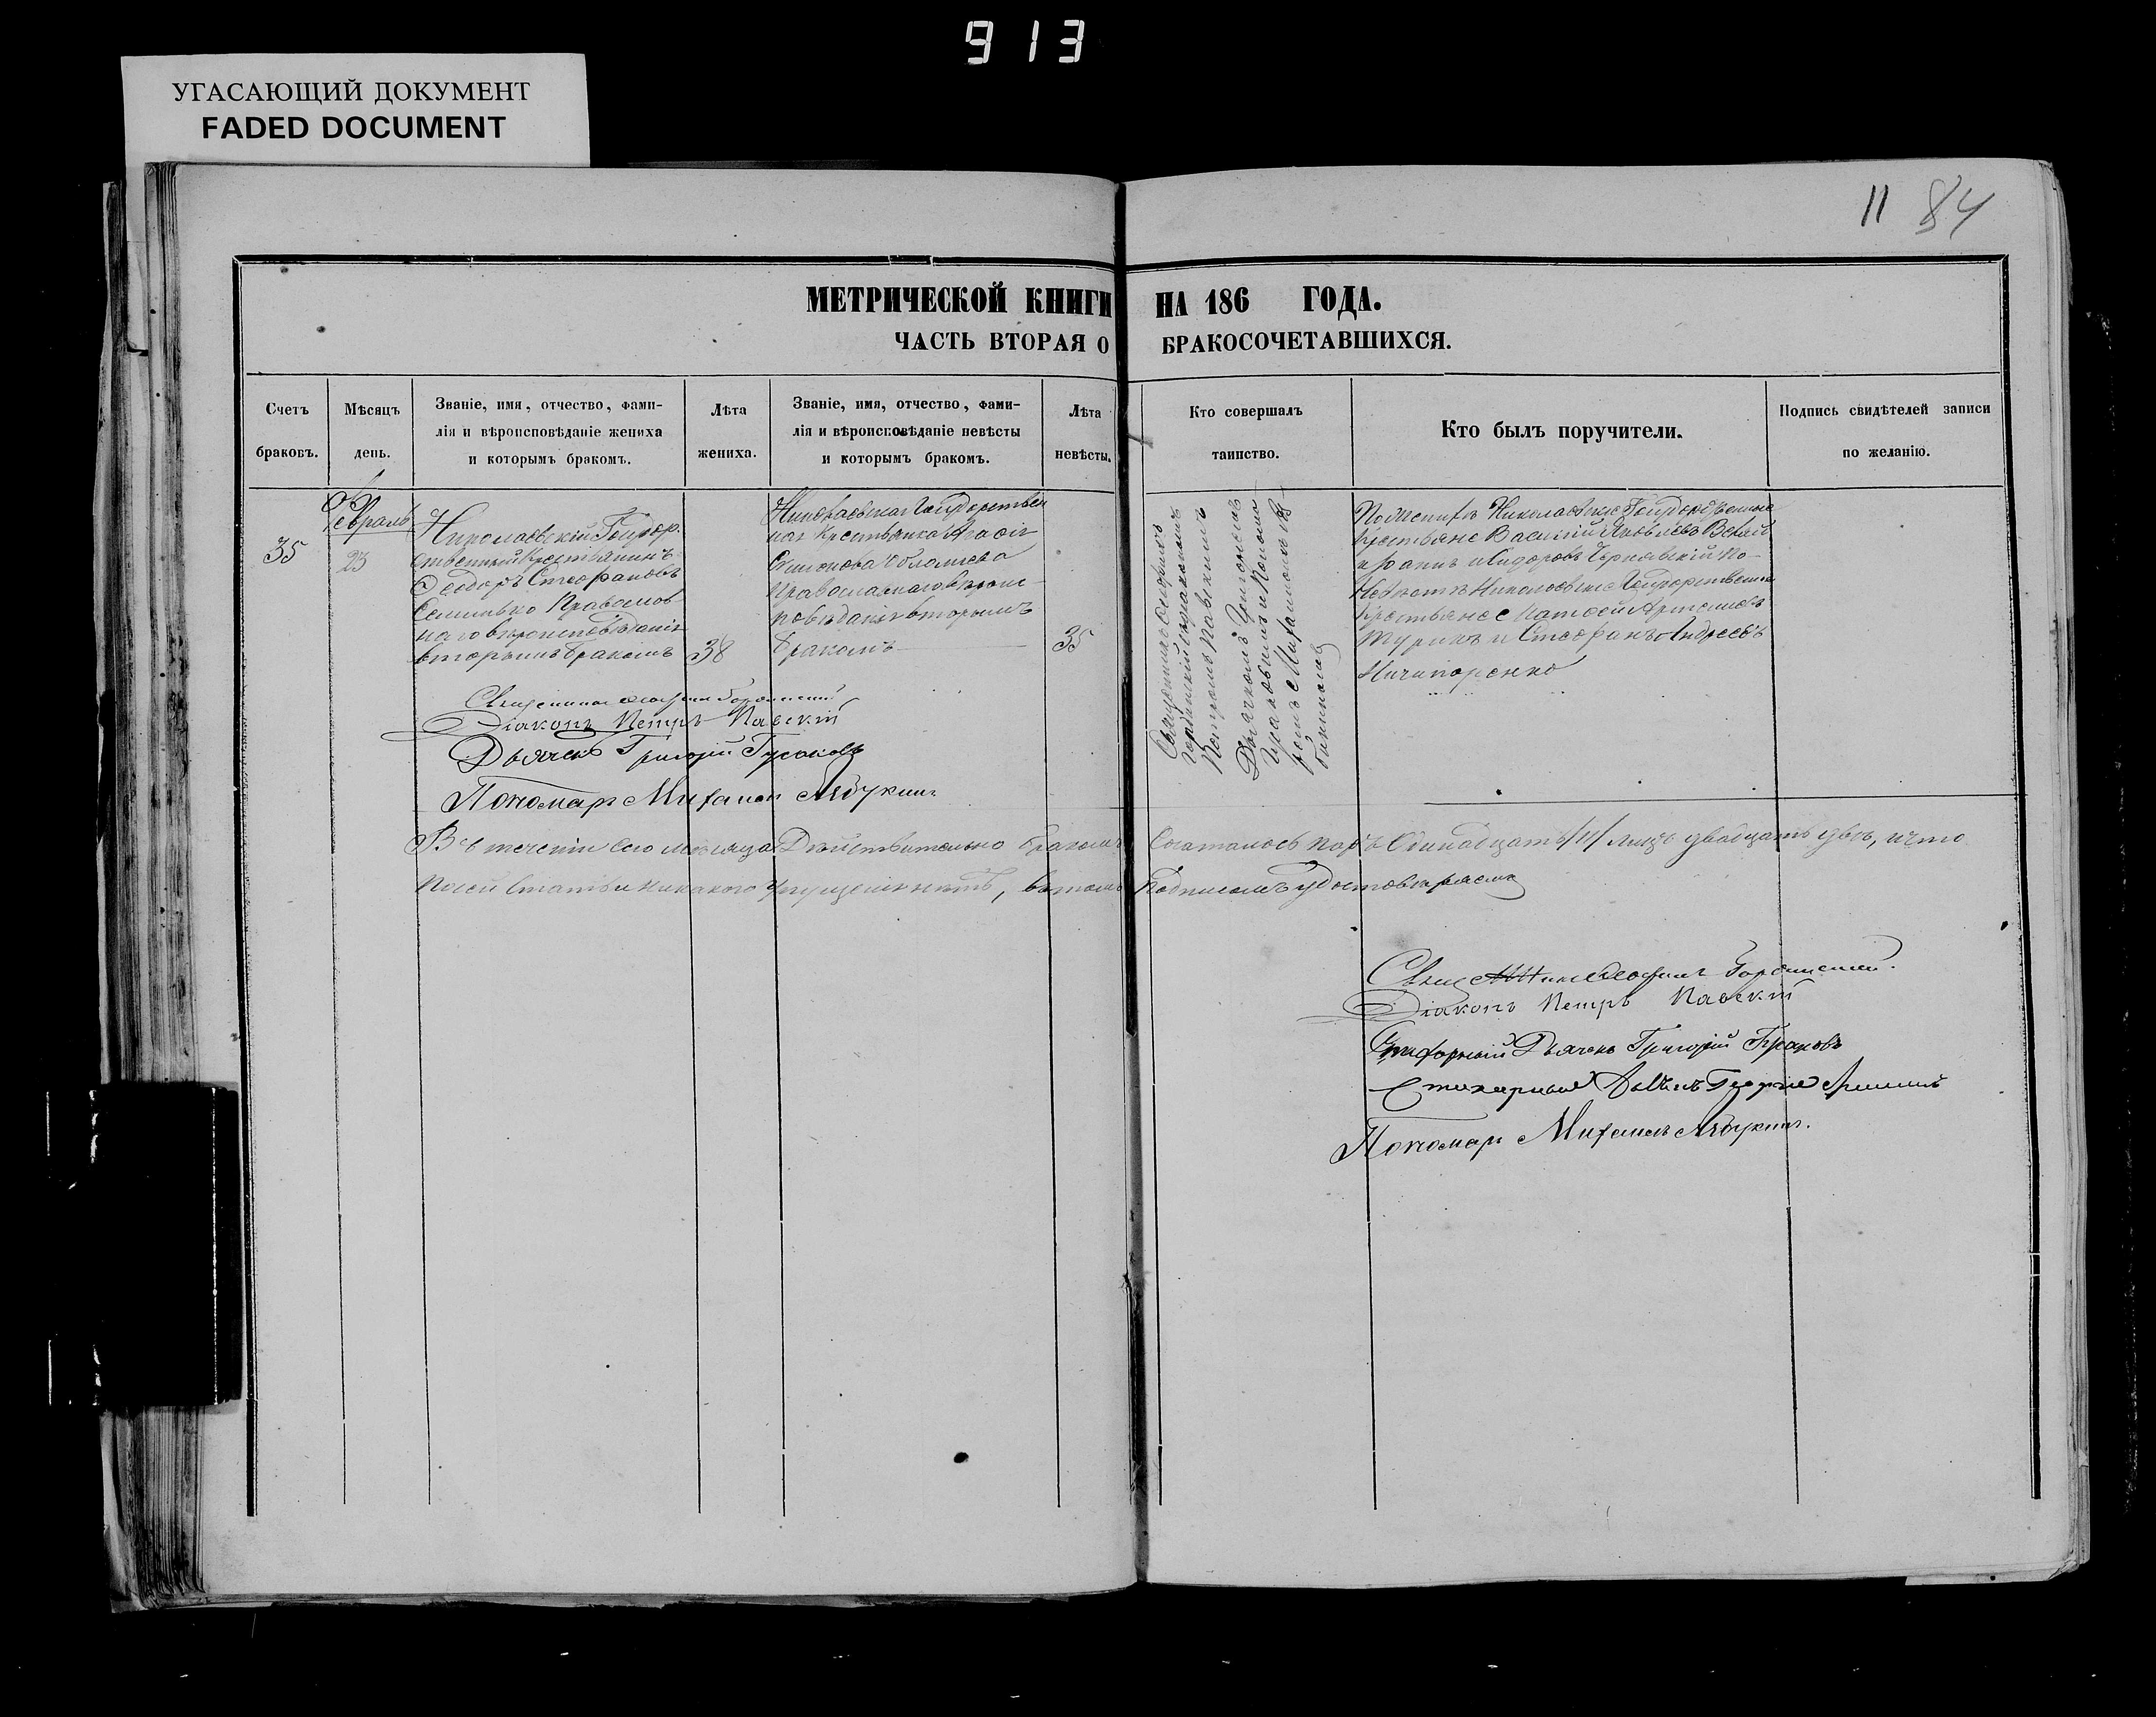 913
УГАСАЮЩИЙ ДОКУМЕНТ
FADED DOCUMENT
11 84
МЕТРИЧЕСКОЙ КНИГИ НА 186 ГОДА.
ЧАСТЬ ВТОРАЯ О БРАКОСОЧЕТАВШИХСЯ.
Счетъ
браковъ.
Мѣсяцъ
день.
Званіе, имя, отчество, фами-
лія и вѣроисповѣданіе жениха
и которымъ бракомъ.
Лѣта
жениха.
Званіе, имя, отчество, фами-
лія и вѣроисповѣданіе невѣсты
и которымъ бракомъ.
Лѣта
невѣсты.
Кто совершалъ
таинство.
Кто былъ поручители.
Подпись свидѣтелей записи
по желанію.
35
Февраль
23
Николаевскій Государ-
ственный Крестьянинъ
Феодоръ Стефановъ
Православ-
наго вѣроисповѣданія
вторымъ бракомъ
38
Николаевская Государствен
ная Крестьянка Агафія
Симонова
Православнаго вѣроис-
повѣданія вторымъ
бракомъ
35
Петромъ Павскимъ
Дьячкомъ Григоріемъ
Гусаковымъ и Понома-
ремъ Михаиломъ
По женихѣ Николаевские Государственные
Крестьяне Василий Яковлевъ
Иоаннъ Сидоровъ Чернявскій По
Невѣстѣ Николаевские Государственные
Крестьяне Матфей Артемовъ
и Стефанъ Андреевъ
Ничипоренко
Священникъ
Діаконъ Петръ Павскій
Дьячекъ Григорій Гусаковъ
Пономарь Михаилъ Лябукинъ
Въ теченіи сего мѣсяца Дѣйствительно бракомъ Сочеталось паръ Одинадцать /11/ лицъ двадцать двѣ, и что
По сей Статьи никакого упущенія нѣтъ, въ томъ Подписомъ удостовѣряемъ
Діаконъ Петръ Павскій
Стихарный Дьячекъ Григорій Гусаковъ
Стихарный
Пономарь Михаилъ Лябукинъ.